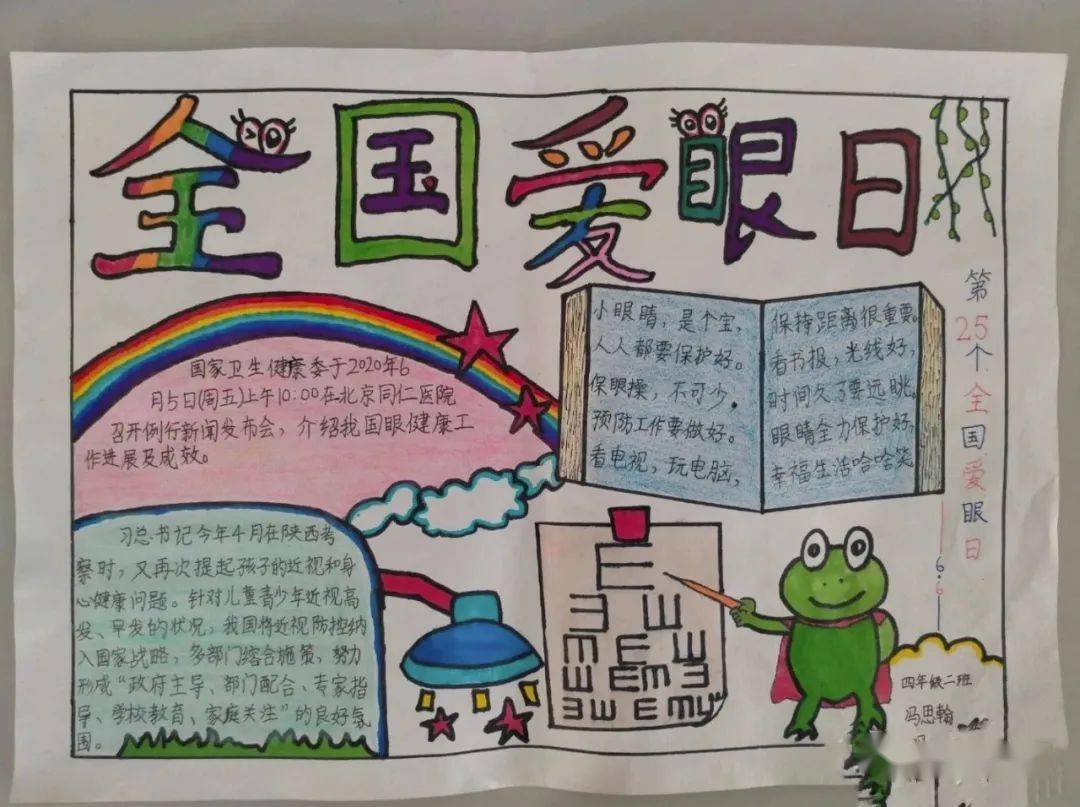 全国爱眼日
国家卫生健康委于2020年6
月5日(周五)上午10:00在北京同仁医院
召开例行新闻发布会，介绍我国眼健康工
作进展及成效。
小眼睛，是个宝，
人人都要保护好。
保眼操，不可少，
预防工作要做好。
看电视，玩电脑，
保持距离很重要。
看书报，光线好，
时间久了要远眺。
眼睛全力保护好，
幸福生活哈哈笑
第25个全国爱眼日
6.6
习总书记今年4月在陕西考
察时，又再次提起孩子的近视和身
心健康问题。针对儿童青少年近视高
发、早发的状况，我国将近视防控纳
入国家战略，多部门综合施策，努力
形成“政府主导、部门配合、专家指
导、学校教育、家庭关注”的良好氛
围。
E
ヨ E W
m E W
W E m ヨ
ヨ W E m W
四年级二班
冯思翰